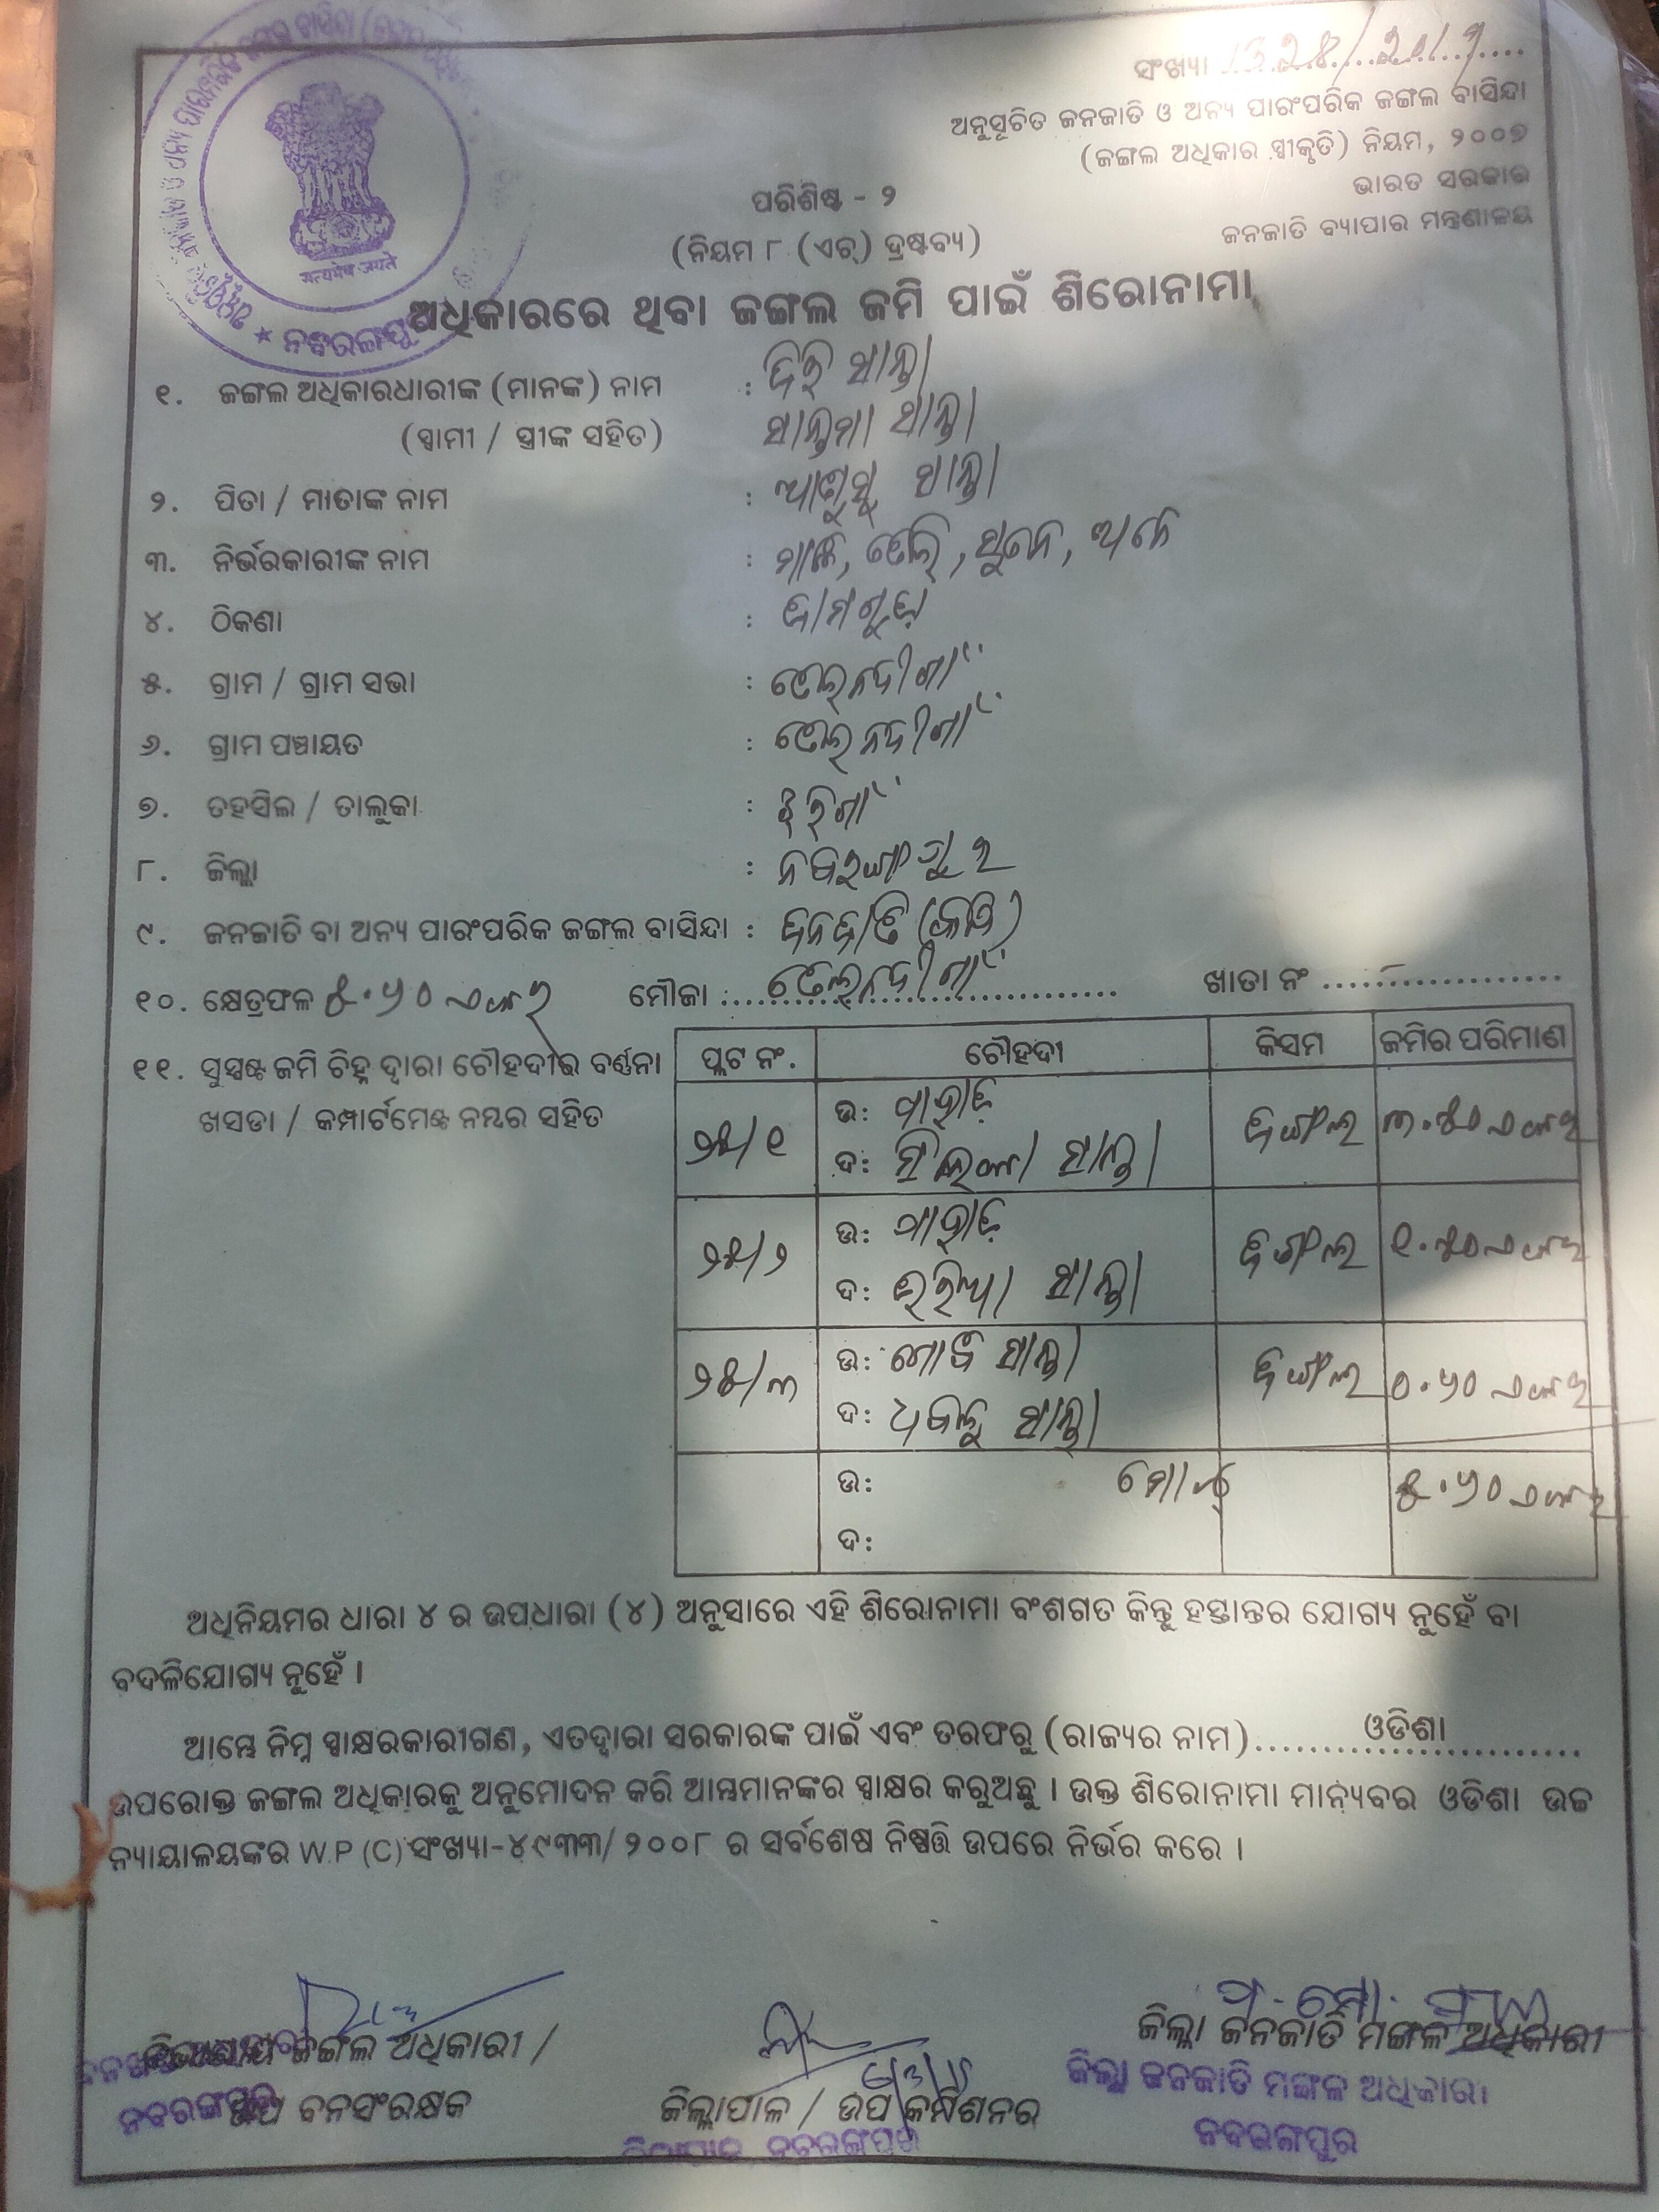 ସଂଖ୍ୟା
ଅନୁସୂଚିତ ଜନଜାତି ଓ ଅନ୍ୟ ପାରଂପରିକ ଜଙ୍ଗଲ ବାସିନ୍ଦା
(ଜଙ୍ଗଲ ଅଧିକାର ସ୍ୱୀକୃତି) ନିୟମ, ୨୦୦୭
ଭାରତ ସରକାର
ଜନଜାତି ବ୍ୟାପାର ମନ୍ତ୍ରଣାଳୟ
ପରିଶିଷ୍ଟ - ୨
(ନିୟମ ୮ (ଏଚ୍) ଦ୍ରଷ୍ଟବ୍ୟ)
सत्यमेव जयते
ଅଧିକାରରେ ଥିବା ଜଙ୍ଗଲ ଜମି ପାଇଁ ଶିରୋନାମା
୧. ଜଙ୍ଗଲ ଅଧିକାରଧାରୀଙ୍କ (ମାନଙ୍କ) ନାମ :
(ସ୍ୱାମୀ / ସ୍ତ୍ରୀଙ୍କ ସହିତ)
୨. ପିତା / ମାତାଙ୍କ ନାମ :
୩. ନିର୍ଭରକାରୀଙ୍କ ନାମ :
୪. ଠିକଣା : ଜାମଗୁଡ଼ା
୫. ଗ୍ରାମ / ଗ୍ରାମ ସଭା : ତେଲ୍‌ନଦୀଗାଁ
୬. ଗ୍ରାମ ପଞ୍ଚାୟତ : ତେଲ୍‌ନଦୀଗାଁ
୭. ତହସିଲ / ତାଲୁକା : ଝରିଗାଁ
୮. ଜିଲ୍ଲା : ନବରଙ୍ଗପୁର
୯. ଜନଜାତି ବା ଅନ୍ୟ ପାରଂପରିକ ଜଙ୍ଗଲ ବାସିନ୍ଦା : ଜନଜାତି
୧୦. କ୍ଷେତ୍ରଫଳ ୫.୬୦ ଏକର ମୌଜା : ତେଲ୍‌ନଦୀଗାଁ ଖାତା ନଂ
୧୧. ସୁସ୍ପଷ୍ଟ ଜମି ଚିହ୍ନ ଦ୍ୱାରା ଚୌହଦୀର ବର୍ଣ୍ଣନା
ଖସଡା / କମ୍ପାର୍ଟମେଣ୍ଟ ନମ୍ବର ସହିତ
ପ୍ଲଟ ନଂ. ଚୌହଦୀ କିସମ ଜମିର ପରିମାଣ
୨୫/୧ ଉ: ପାହାଡ଼ ଜଙ୍ଗଲ ୩.୫୦ ଏକର
ଦ: ସାନ୍ତା
୨୫/୨ ଉ: ପାହାଡ଼ ଜଙ୍ଗଲ ୧.୫୦ ଏକର
ଦ: ସାନ୍ତା
୨୫/୩ ଉ: ସାନ୍ତା ଜଙ୍ଗଲ ୦.୬୦ ଏକର
ଦ: ସାନ୍ତା
ଉ: ମୋଟ୍ ୫.୬୦ ଏକର
ଦ:
ଅଧିନିୟମର ଧାରା ୪ ର ଉପଧାରା (୪) ଅନୁସାରେ ଏହି ଶିରୋନାମା ବଂଶଗତ କିନ୍ତୁ ହସ୍ତାନ୍ତର ଯୋଗ୍ୟ ନୁହେଁ ବା
ବଦଳିଯୋଗ୍ୟ ନୁହେଁ ।
ଆମ୍ଭେ ନିମ୍ନ ସ୍ୱାକ୍ଷରକାରୀଗଣ, ଏତଦ୍ୱାରା ସରକାରଙ୍କ ପାଇଁ ଏବଂ ତରଫରୁ (ରାଜ୍ୟର ନାମ) ଓଡିଶା
ଉପରୋକ୍ତ ଜଙ୍ଗଲ ଅଧିକାରକୁ ଅନୁମୋଦନ କରି ଆମ୍ଭମାନଙ୍କର ସ୍ୱାକ୍ଷର କରୁଅଛୁ । ଉକ୍ତ ଶିରୋନାମା ମାନ୍ୟବର ଓଡିଶା ଉଚ୍ଚ
ନ୍ୟାୟାଳୟଙ୍କର W.P (C) ସଂଖ୍ୟା-୪୯୩୩/୨୦୦୮ ର ସର୍ବଶେଷ ନିଷ୍ପତ୍ତି ଉପରେ ନିର୍ଭର କରେ ।
ଜଙ୍ଗଲ ଅଧିକାରୀ /
ବନସଂରକ୍ଷକ
ନବରଙ୍ଗପୁର
ଜିଲ୍ଲାପାଳ / ଉପ କମିଶନର
ଜିଲ୍ଲାପାଳ, ନବରଙ୍ଗପୁର
ଜିଲ୍ଲା ଜନଜାତି ମଙ୍ଗଳ ଅଧିକାରୀ
ଜିଲ୍ଲା ଜନଜାତି ମଙ୍ଗଳ ଅଧିକାରୀ
ନବରଙ୍ଗପୁର